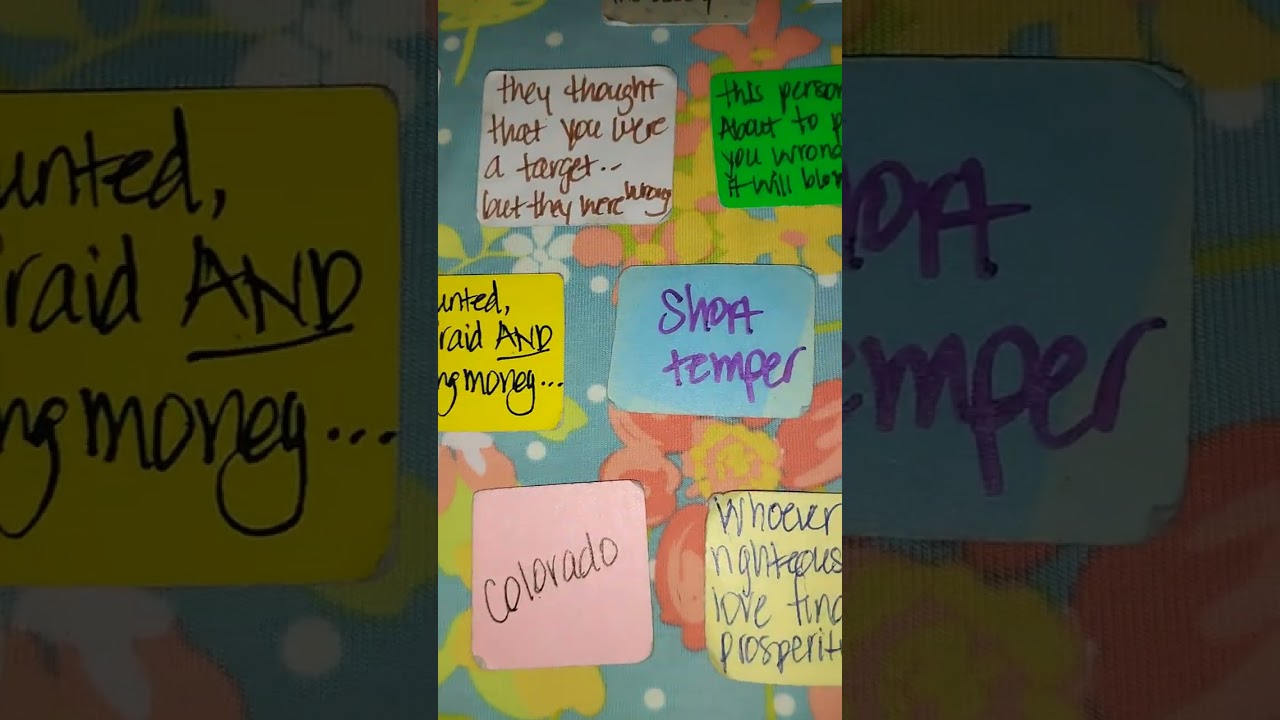 they thought
that you were
a target..
but they were wrong
this person
About to
you wrong
it will
unted,
raid AND
ng money...
Short
temper
Colorado
Whoever
righteous
love find
prosperity